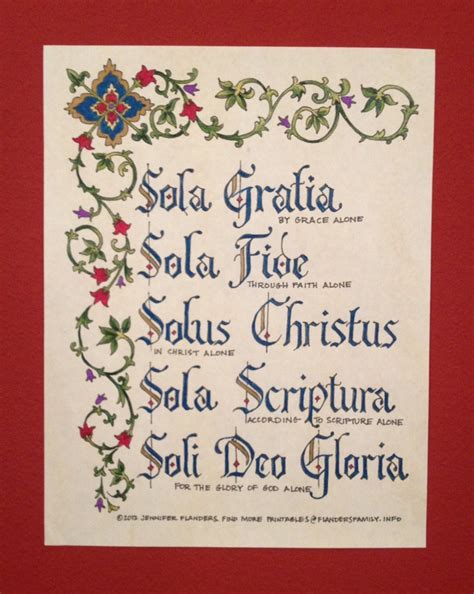 Sola Gratia
BY GRACE ALONE
Sola Fide
THROUGH FAITH ALONE
Solus Christus
IN CHRIST ALONE
Sola Scriptura
ACCORDING TO SCRIPTURE ALONE
Soli Deo Gloria
FOR THE GLORY OF GOD ALONE
©2013 JENNIFER FLANDERS. FIND MORE PRINTABLES@FLANDERSFAMILY.INFO